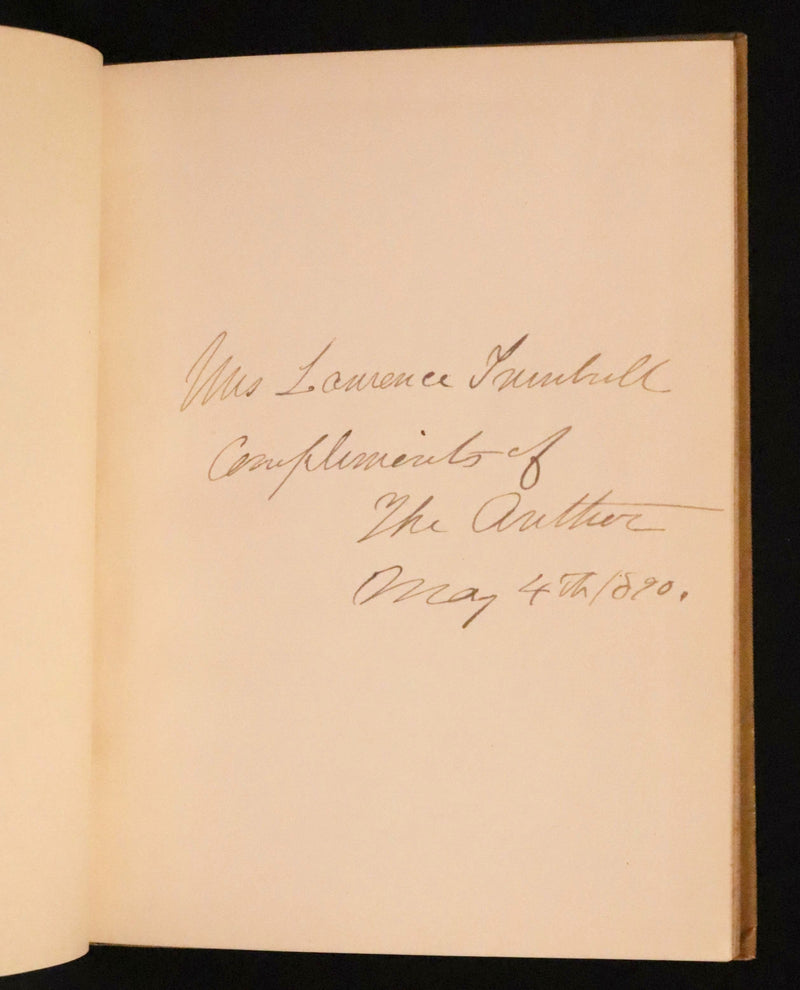 Mrs Lawrence Turnbull
Compliments of
The Author
May 4th 1890.